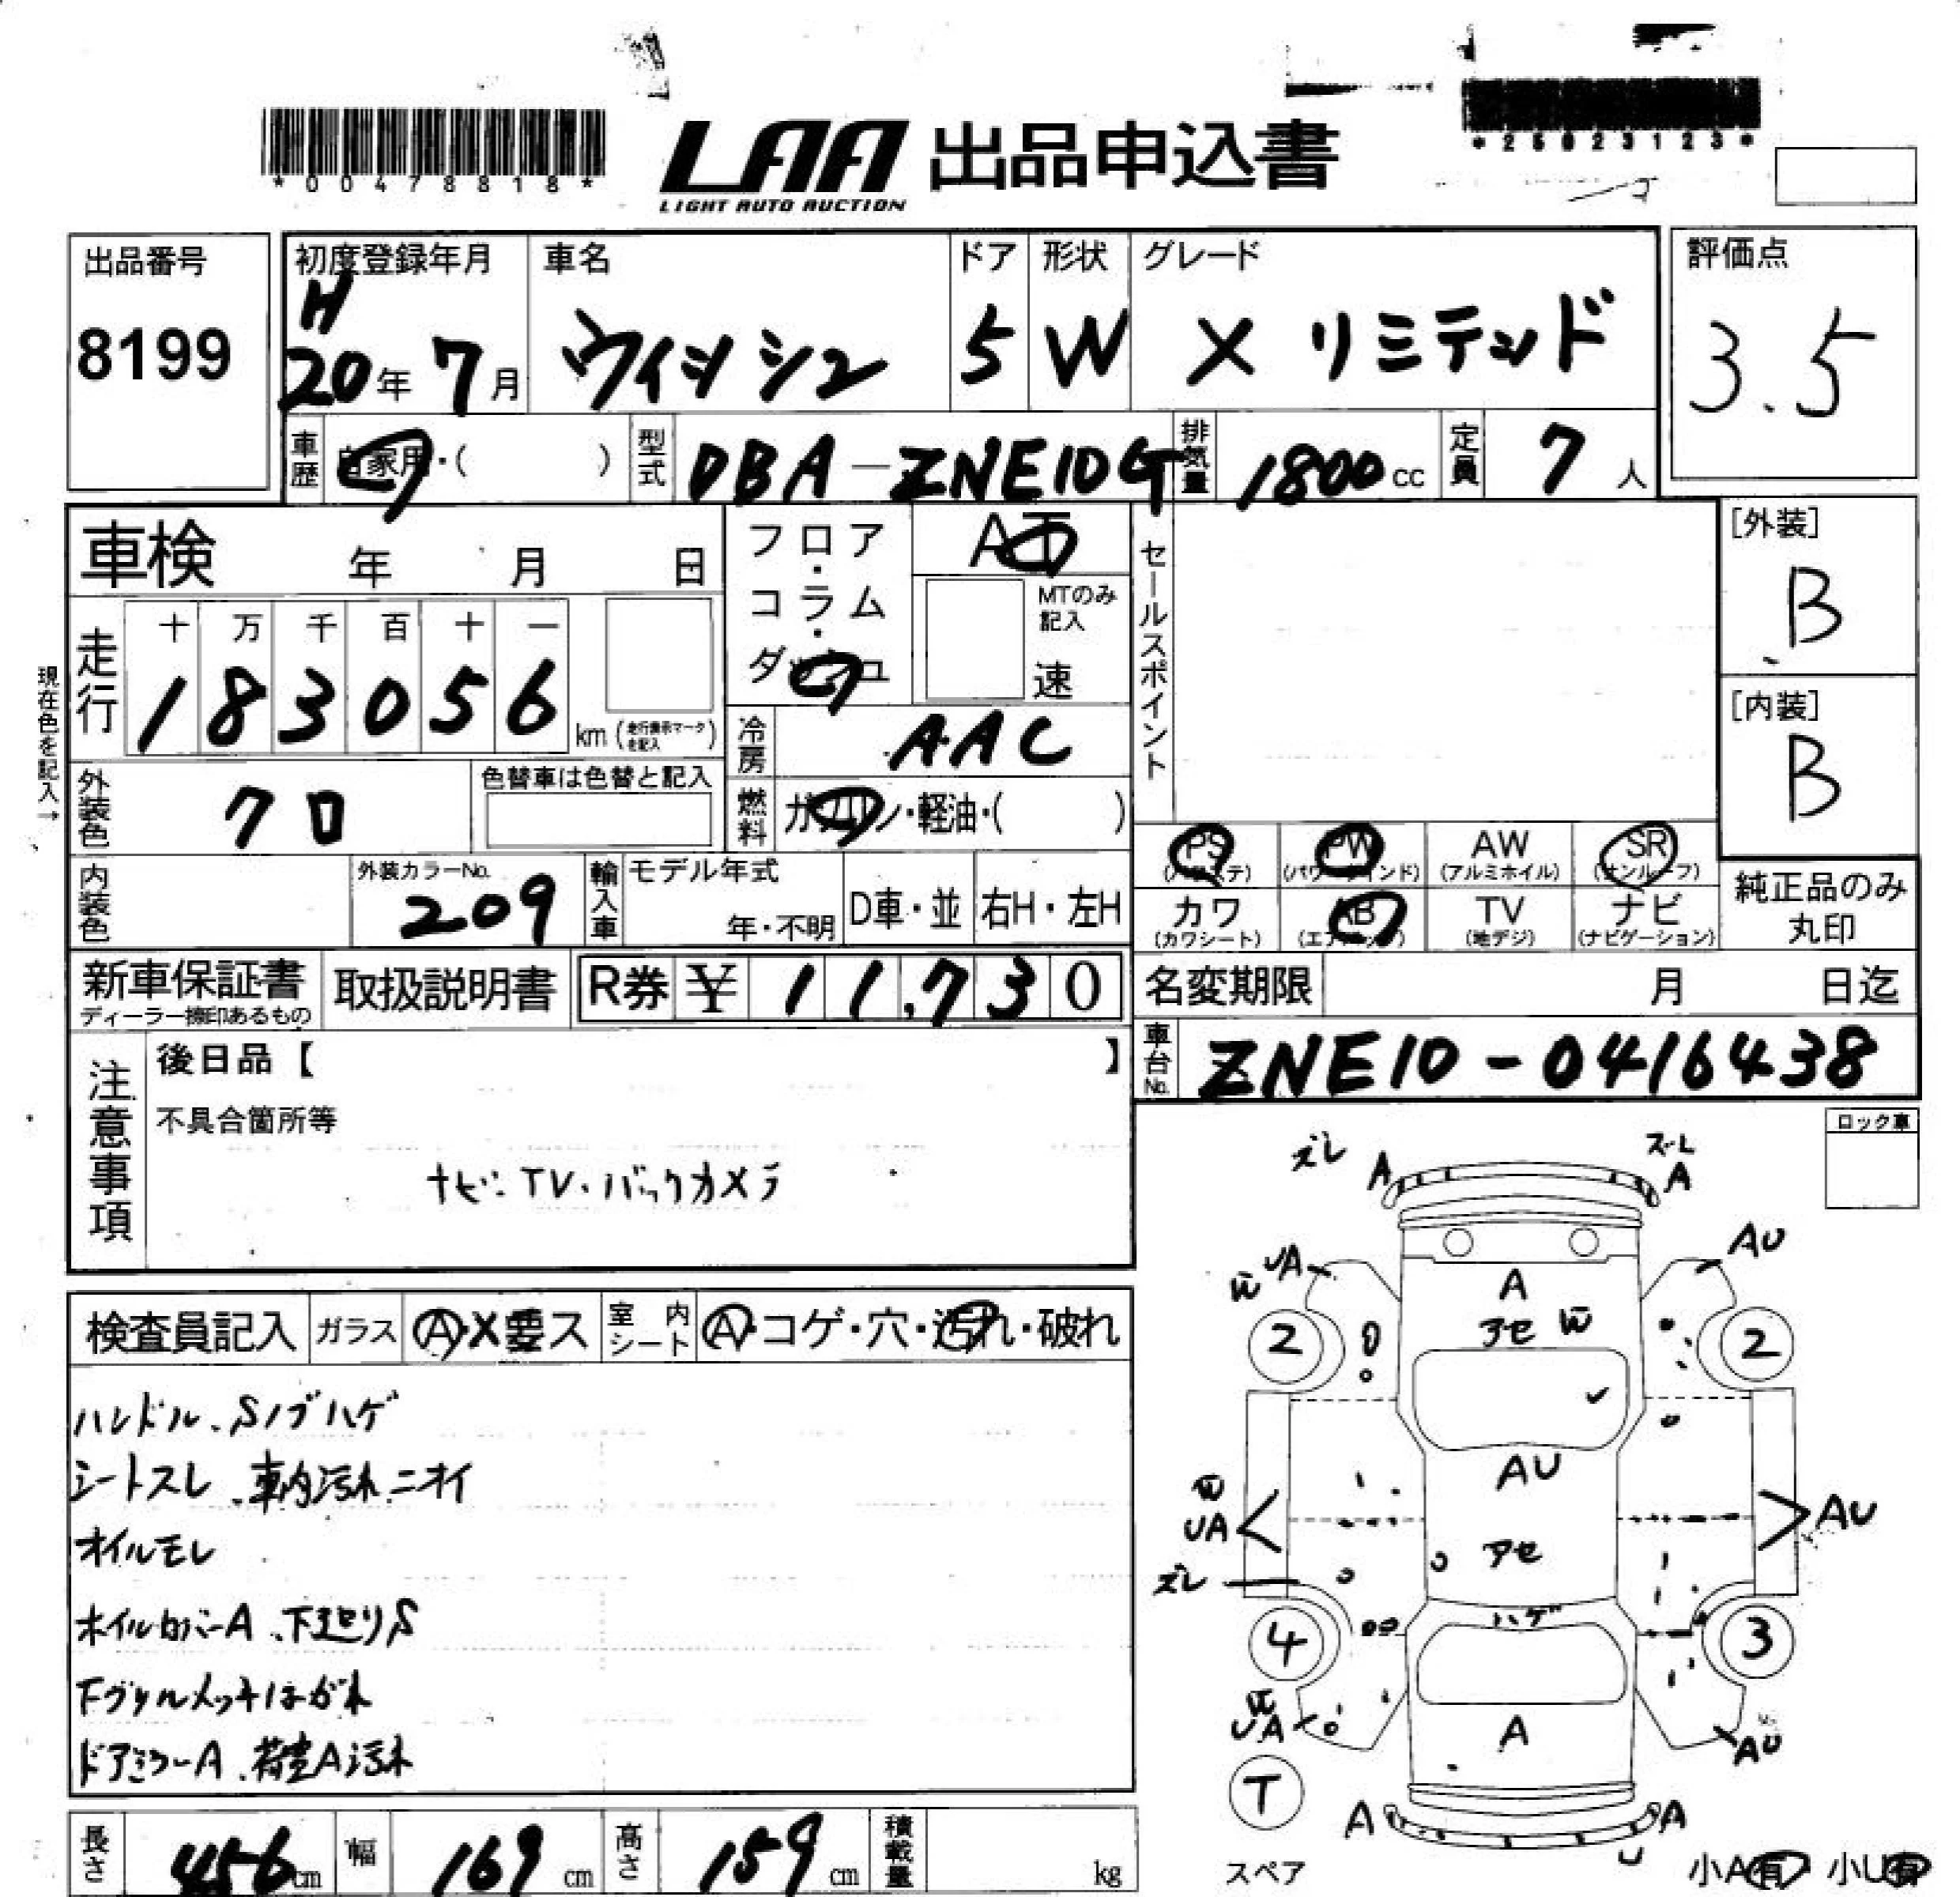 *00478818*
LAA 出品申込書
LIGHT AUTO AUCTION
*25023123*
出品番号 初度登録年月 車名 ドア 形状 グレード 評価点
8199 H20年7月 ウィッシュ 5 W X リミテッド 3.5
車歴 自家用・( ) 型式 DBA-ZNE10G 排気量 1800cc 定員 7人
車検 年 月 日
フロア・コラム・ダッシュ
AT
MTのみ記入
速
セールスポイント
[外装]
B
[内装]
B
現在色を記入→
走行 十 万 千 百 十 一
183056 km (走行表示マークを記入)
冷房 AAC
外装色 クロ 色替車は色替と記入
燃料 ガソリン・軽油・( )
PS (パワステ) PW (パワーウインド) AW (アルミホイル) SR (サンルーフ)
カワ (カワシート) AB (エアバッグ) TV (地デジ) ナビ (ナビゲーション)
純正品のみ丸印
内装色 外装カラーNo. 209 輸入車 モデル年式 年・不明 D車・並 右H・左H
新車保証書 ディーラー捺印あるもの 取扱説明書 R券 ¥ 11,730
名変期限 月 日迄
車台No. ZNE10-0416438
注意事項
後日品【 】
不具合箇所等
ナビ・TV・バックカメラ
ロック車
検査員記入 ガラス A・X要ス 室内シート A・コゲ・穴・汚れ・破れ
ハンドル、Sノブハゲ
シートスレ、車内汚れ、ニオイ
オイルモレ
ホイルカバーA、下廻りS
下グリルメッキはがれ
ドアミラーA、荷室A汚れ
ズレ A ズレ A
UA AU
W
A
アセ W
2 2
AU
W
UA AU
アセ
ズレ
ハゲ
4 3
W
UA A AU
T
A A
U
スペア
小A有 小U有
長さ 456cm 幅 169cm 高さ 159cm 積載量 kg